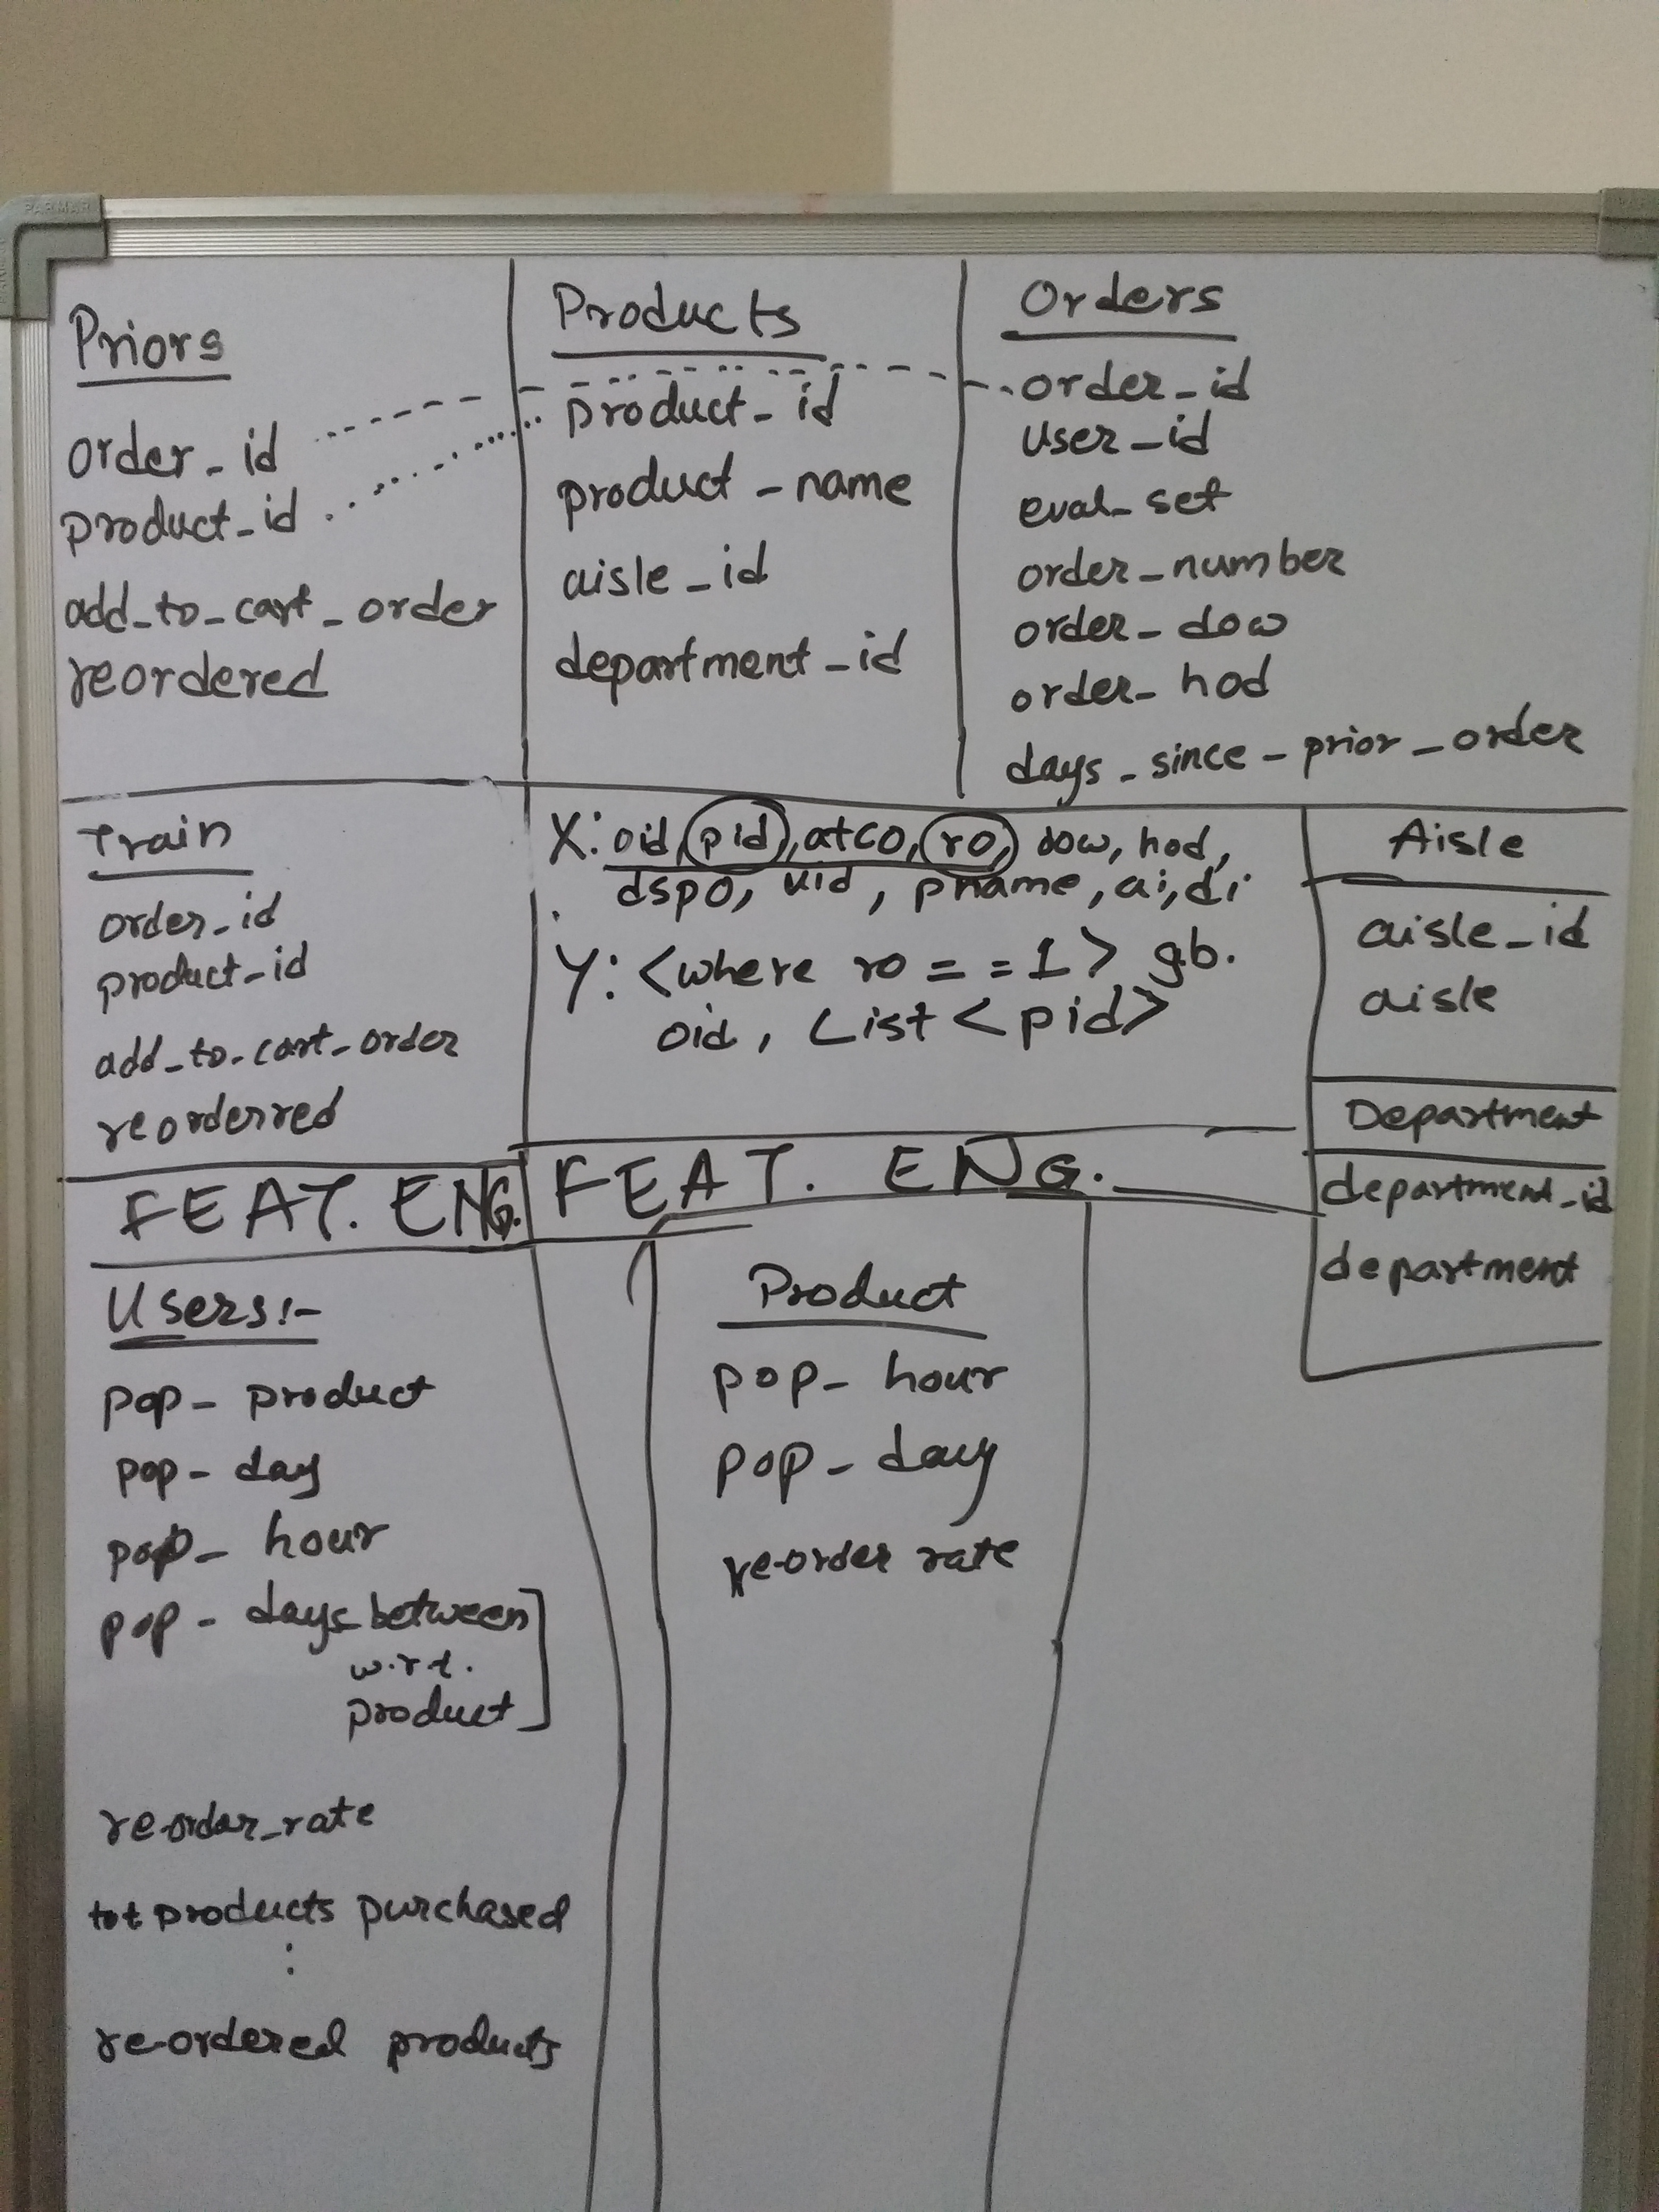 PARMAR
Priors
order_id
product_id
add_to_cart_order
reordered
Products
product_id
product_name
aisle_id
department_id
Orders
order_id
user_id
eval_set
order_number
order_dow
order_hod
days_since_prior_order
Train
order_id
product_id
add_to_cart_order
reorderred
X: oid, pid, atco, ro, dow, hod,
dspo, uid, pname, ai, di
Y: <where ro == 1> gb.
oid, List <pid>
Aisle
aisle_id
aisle
Department
department_id
department
FEAT. ENG.
FEAT. ENG.
Users:-
pop_product
pop_day
pop_hour
pop_days between
w.r.t.
product
re-order_rate
tot products purchased
:
re-ordered products
Product
pop_hour
pop_day
re-order rate